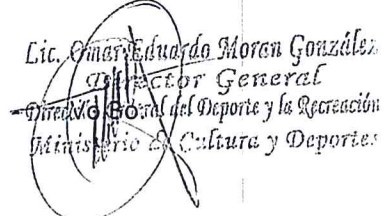 Lic. Omar Eduardo Moran González
Director General
Vo. Bo.
Dirección General del Deporte y la Recreación
Ministerio de Cultura y Deportes